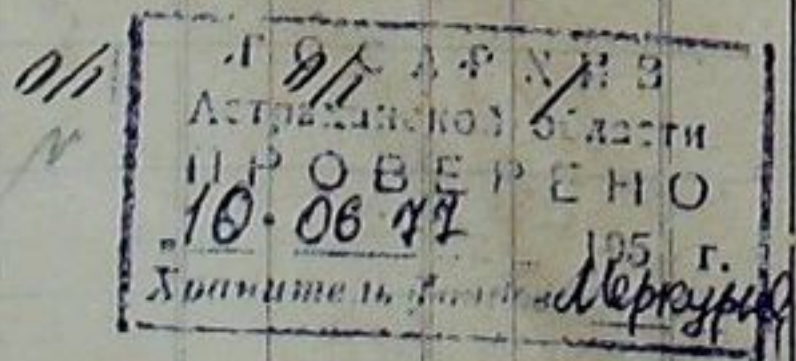 ГОСАРХИВ
Астраханской области
ПРОВЕРЕНО
"10. 06 77 195 г.
Хранитель фондов